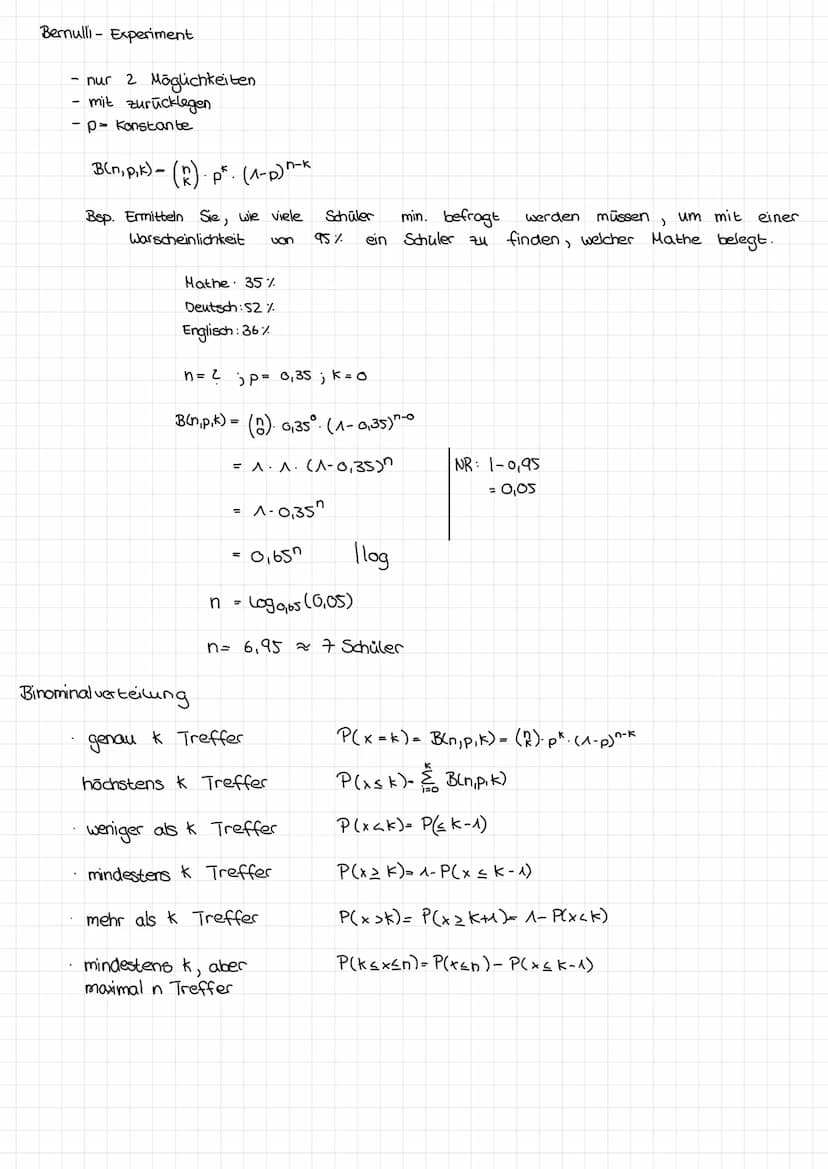 Bernulli - Experiment
- nur 2 Möglichkeiten
- mit zurücklegen
- p = Konstante
B(n,p,k) = (n k) · p^k · (1-p)^n-k
Bsp. Ermitteln Sie, wie viele Schüler min. befragt werden müssen, um mit einer
Warscheinlichkeit von 95% ein Schüler zu finden, welcher Mathe belegt.
Mathe: 35%
Deutsch: 52%
Englisch: 36%
n = ? ; p = 0,35 ; k = 0
B(n,p,k) = (n 0) · 0,35^0 · (1-0,35)^n-0
= 1 · 1 · (1-0,35)^n
NR: 1-0,95
= 0,05
= 1-0,35^n
= 0,65^n | log
n = log0,65 (0,05)
n = 6,95 ≈ 7 Schüler
Binominalverteilung
· genau k Treffer P(x = k) = B(n,p,k) = (n k) · p^k · (1-p)^n-k
höchstens k Treffer P(x ≤ k) = k Σ i=0 B(n,p,k)
· weniger als k Treffer P(x < k) = P(≤ k-1)
· mindestens k Treffer P(x ≥ k) = 1 - P(x ≤ k-1)
· mehr als k Treffer P(x > k) = P(x ≥ k+1) = 1 - P(x < k)
· mindestens k, aber P(k ≤ x ≤ n) = P(x ≤ n) - P(x ≤ k-1)
maximal n Treffer